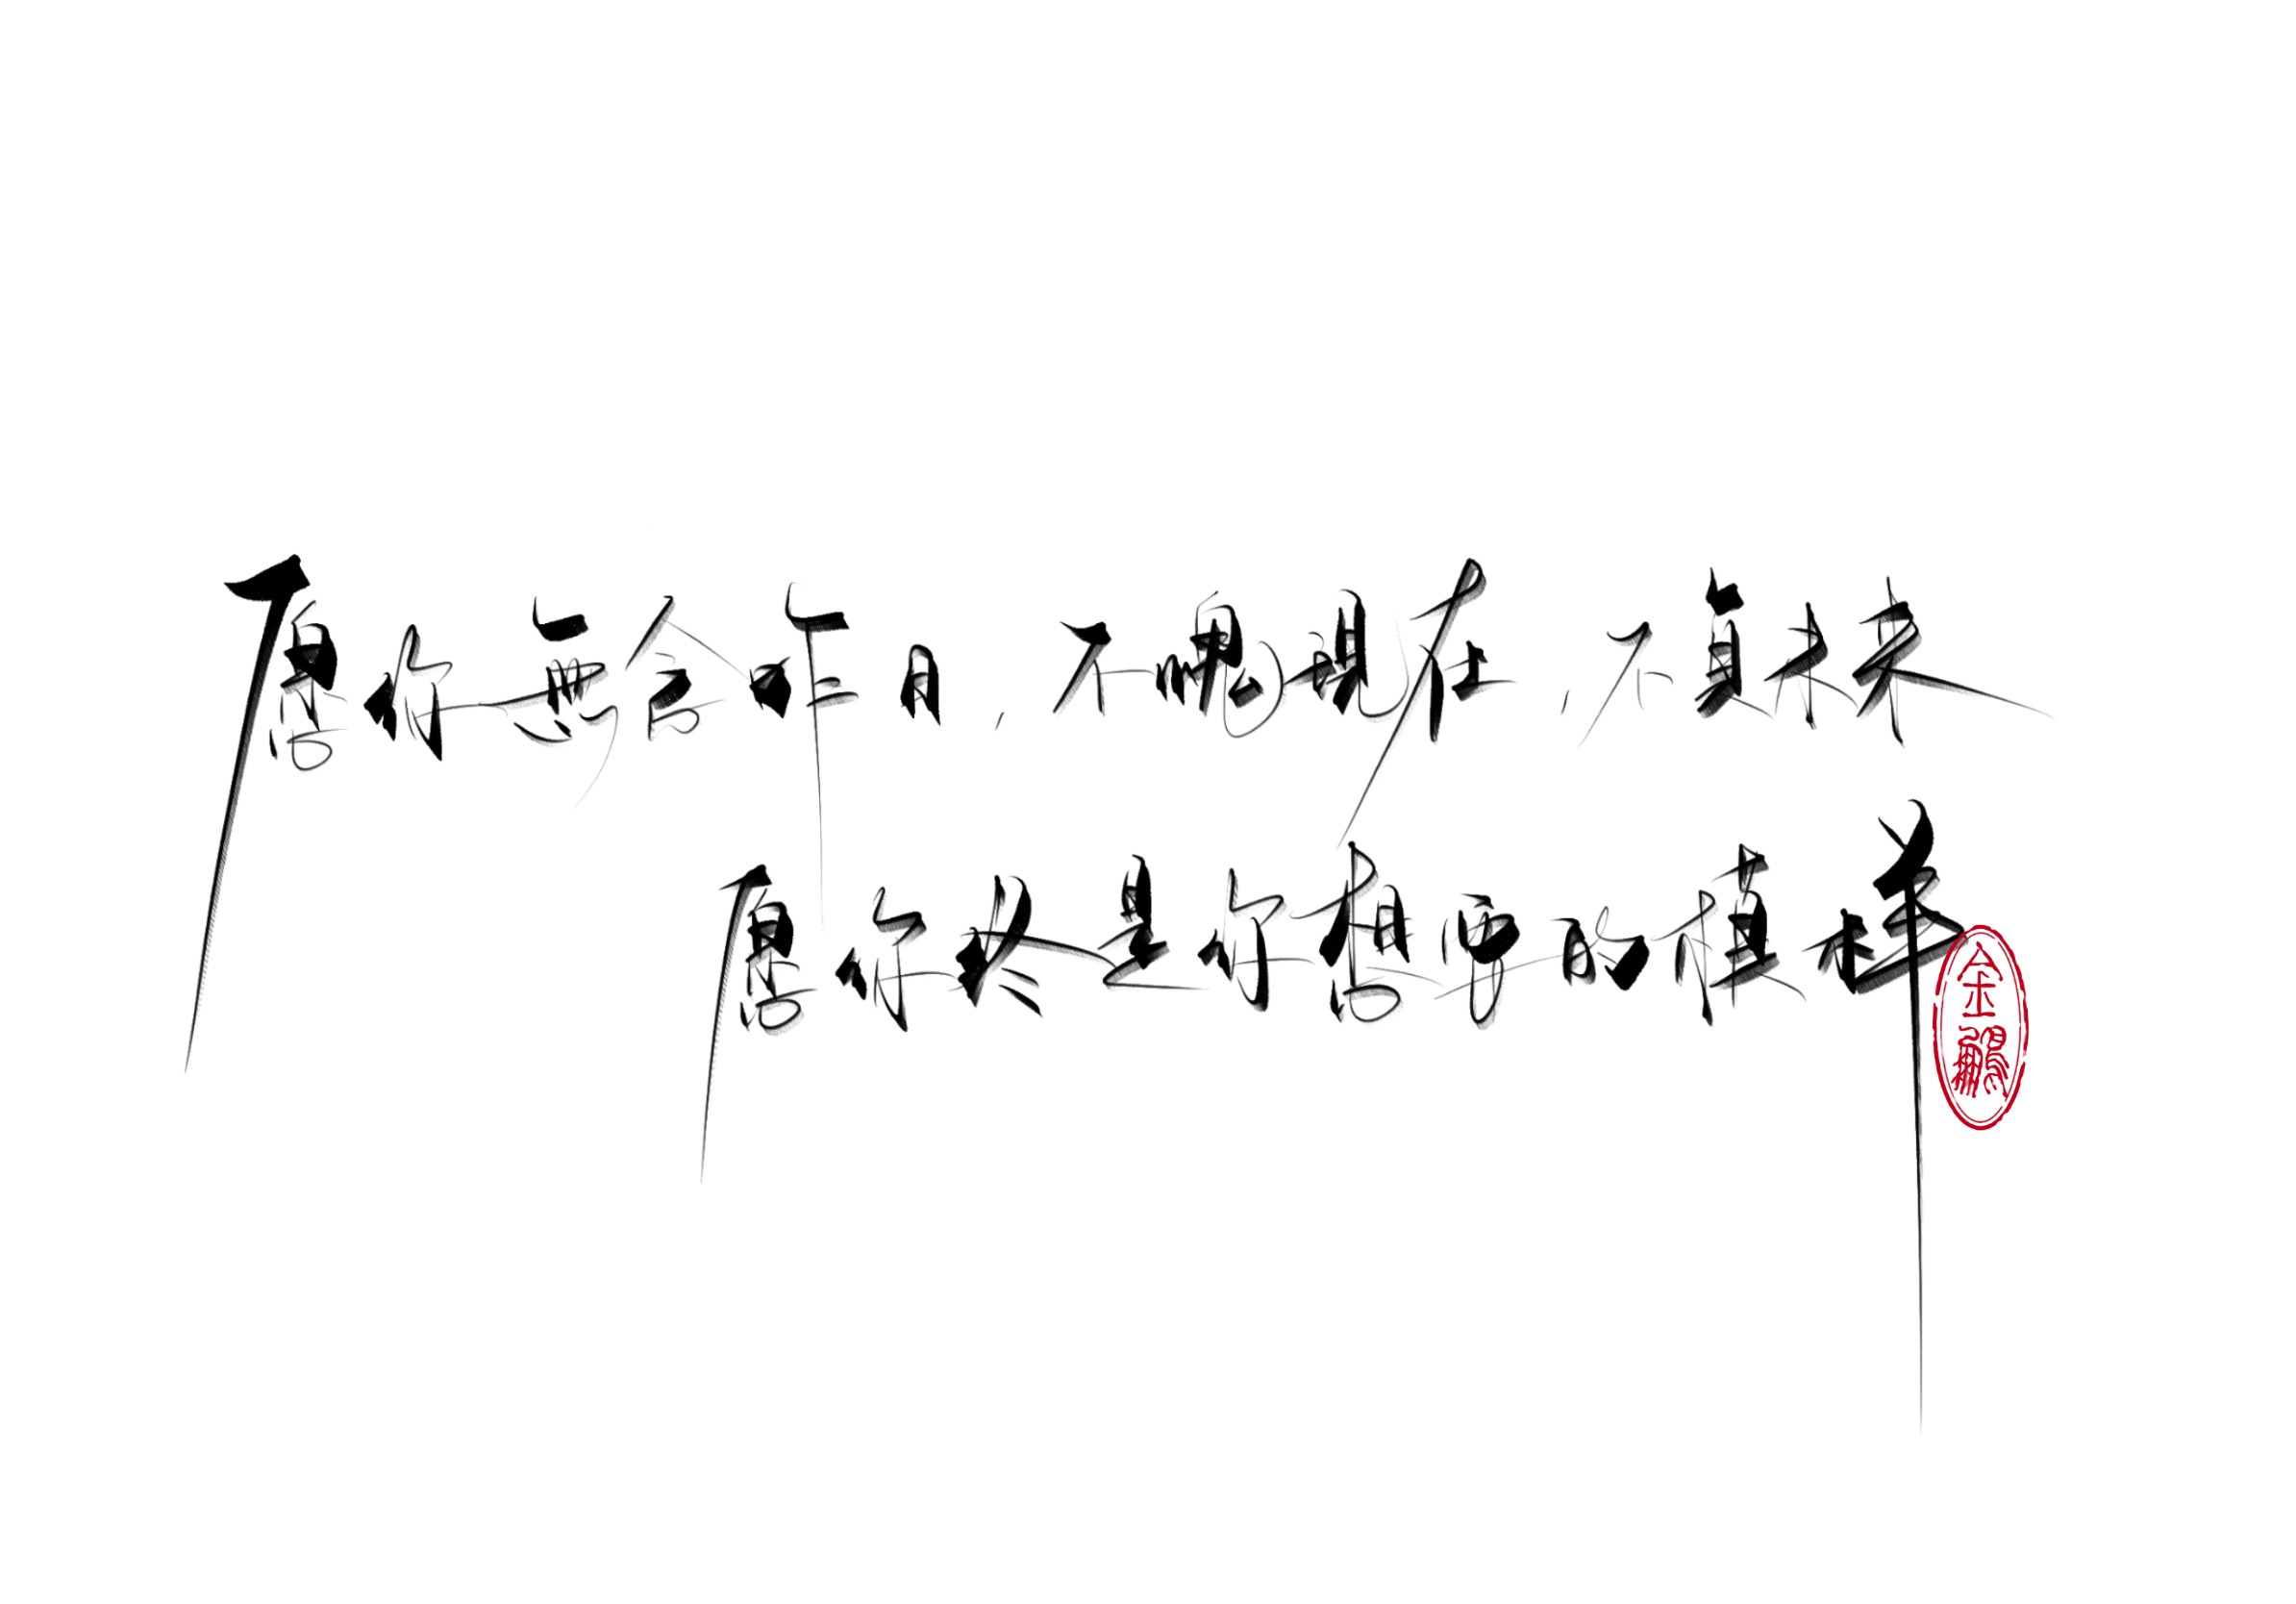 愿你無念昨日，不愧現在，不負未来
愿你终是你想要的模样
金鵬